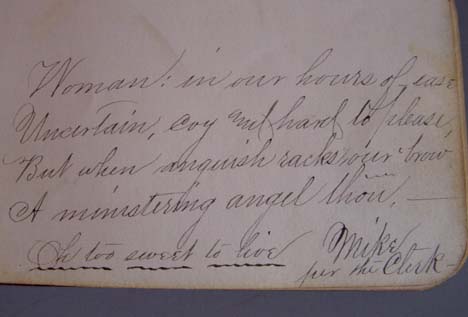 Woman! in our hours of ease
Uncertain, coy and hard to please,
But when anguish racks our brow
A ministering angel thou. —
Oh too sweet to live
Mike
per the Clerk —